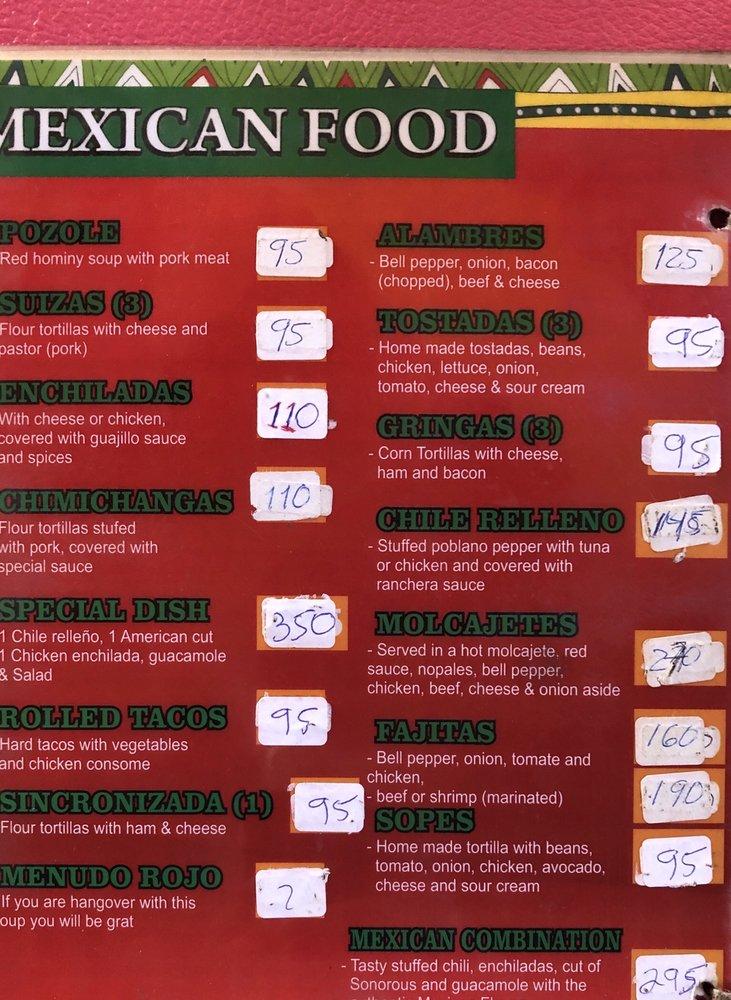 MEXICAN FOOD
POZOLE
Red hominy soup with pork meat
95
SUIZAS (3)
Flour tortillas with cheese and
pastor (pork)
95
ENCHILADAS
With cheese or chicken,
covered with guajillo sauce
and spices
110
CHIMICHANGAS
Flour tortillas stufed
with pork, covered with
special sauce
110
SPECIAL DISH
1 Chile relleño, 1 American cut
1 Chicken enchilada, guacamole
& Salad
350
ROLLED TACOS
Hard tacos with vegetables
and chicken consome
95
SINCRONIZADA (1)
Flour tortillas with ham & cheese
95
MENUDO ROJO
If you are hangover with this
oup you will be grat
?
ALAMBRES
- Bell pepper, onion, bacon
(chopped), beef & cheese
125
TOSTADAS (3)
- Home made tostadas, beans,
chicken, lettuce, onion,
tomato, cheese & sour cream
95
GRINGAS (3)
- Corn Tortillas with cheese,
ham and bacon
95
CHILE RELLENO
- Stuffed poblano pepper with tuna
or chicken and covered with
ranchera sauce
145
MOLCAJETES
- Served in a hot molcajete, red
sauce, nopales, bell pepper,
chicken, beef, cheese & onion aside
270
FAJITAS
- Bell pepper, onion, tomate and
chicken,
160
- beef or shrimp (marinated)
190
SOPES
- Home made tortilla with beans,
tomato, onion, chicken, avocado,
cheese and sour cream
95
MEXICAN COMBINATION
- Tasty stuffed chili, enchiladas, cut of
Sonorous and guacamole with the
295